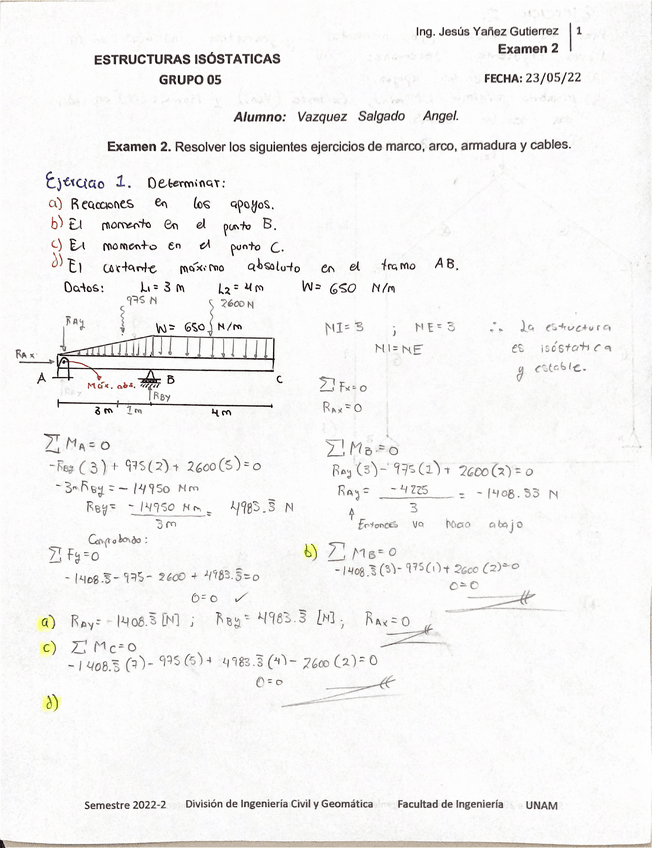 Ing. Jesús Yañez Gutierrez 1
Examen 2
ESTRUCTURAS ISÓSTATICAS
GRUPO 05
FECHA: 23/05/22
Alumno: Vazquez Salgado Angel.
Examen 2. Resolver los siguientes ejercicios de marco, arco, armadura y cables.
Ejercicio 1. Determinar:
a) Reacciones en los apoyos.
b) El momento en el punto B.
c) El momento en el punto C.
d) El cortante máximo absoluto en el tramo AB.
Datos: L1 = 3 m L2 = 4 m W = 650 N/m
975 N 2600 N
RAy
W = 650 N/m
RAx
A B C
Máx. abs.
RBy
3 m 1m 4 m
NI = 3 ; NE = 3 ∴ La estructura
NI = NE es isóstatica
y estable.
∑ Fx = 0
RAx = 0
∑ MA = 0
-RBy (3) + 975(2) + 2600(5) = 0
-3m RBy = - 14950 Nm
RBy = - 14950 Nm / 3m = 4983.3̄ N
Comprobando:
∑ Fy = 0
-1408.3̄ - 975 - 2600 + 4983.3̄ = 0
0 = 0 ✓
∑ MB = 0
RAy (3) - 975(1) + 2600(2) = 0
RAy = -4225 / 3 = -1408.33 N
↑ Entonces va hacia abajo
b) ∑ MB = 0
-1408.3̄(3) - 975(1) + 2600(2) = 0
0 = 0
a) RAy = -1408.3̄ [N] ; RBy = 4983.3̄ [N] ; RAx = 0
c) ∑ Mc = 0
-1408.3̄ (7) - 975(5) + 4983.3̄(4) - 2600(2) = 0
0 = 0
d)
Semestre 2022-2 División de Ingeniería Civil y Geomática Facultad de Ingeniería UNAM